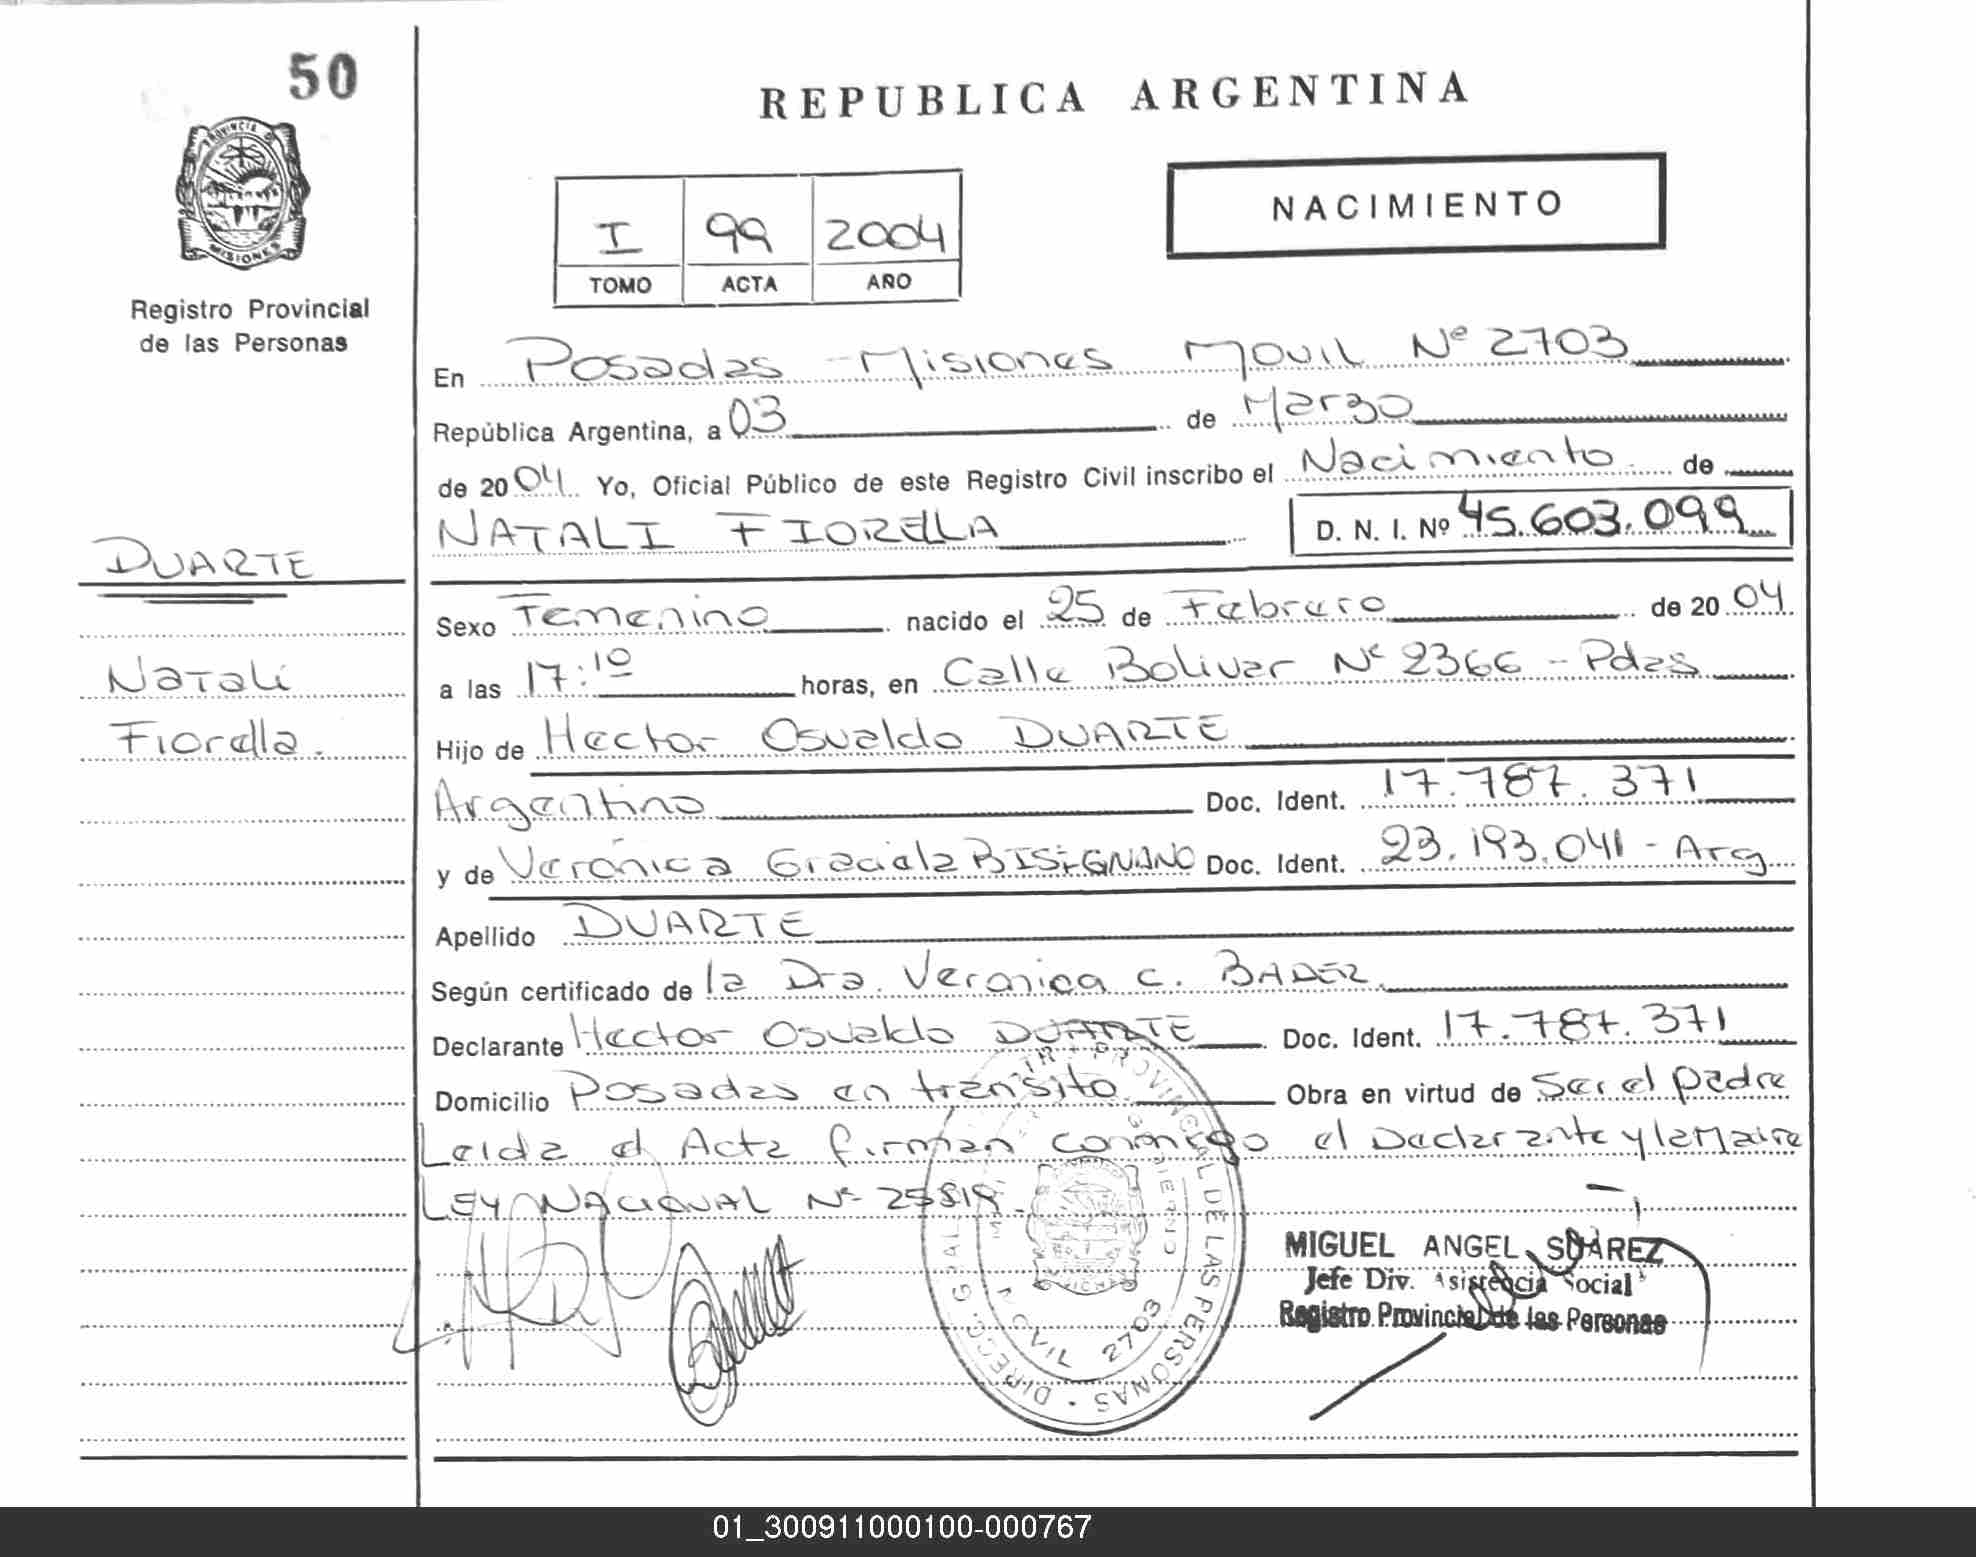 50
PROVINCIA D
MISIONES
Registro Provincial
de las Personas
DUARTE
Natali
Fiorella.
REPUBLICA ARGENTINA
I 99 2004
TOMO ACTA AÑO
NACIMIENTO
En Posadas - Misiones Movil Nº 2703
República Argentina, a 03 de Marzo
de 2004 Yo, Oficial Público de este Registro Civil inscribo el Nacimiento de
NATALI FIORELLA D. N. I. Nº 45.603.099
Sexo Femenino nacido el 25 de Febrero de 2004
a las 17:10 horas, en Calle Bolivar Nº 2366 - Pdas
Hijo de Hector Osvaldo DUARTE
Argentino Doc. Ident. 17.787.371
y de Verónica Graciela BISIGNANO Doc. Ident. 23.193.041 - Arg
Apellido DUARTE
Según certificado de la Dra. Veronica C. BADER
Declarante Hector Osvaldo DUARTE Doc. Ident. 17.787.371
Domicilio Posadas en transito Obra en virtud de Ser el padre
Leida el Acta firman conmigo el Declarante y la Madre
LEY NACIONAL Nº 25819.
DIRECC. GRAL. PROVINCIAL DE LAS PERSONAS
MOVIL 2703
MIGUEL ANGEL SUAREZ
Jefe Div. Asistencia Social
Registro Provincial de las Personas
01_300911000100-000767